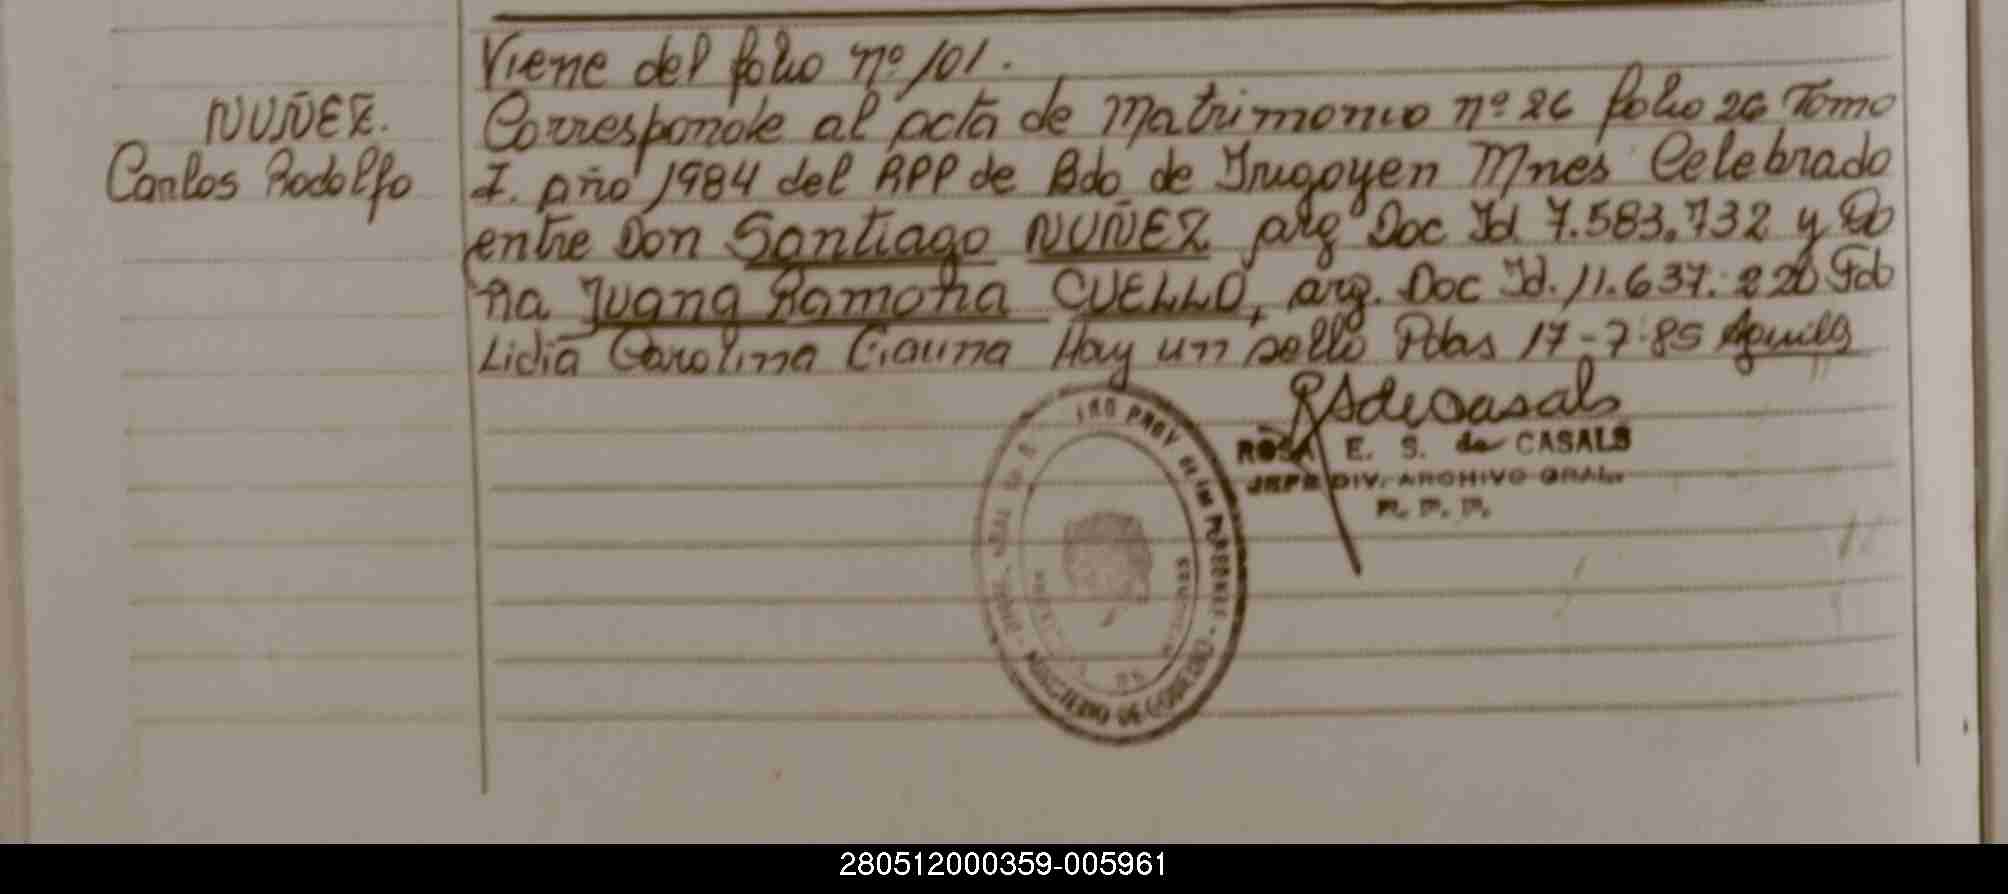 Viene del folio nº 101.
NUÑEZ.
Carlos Rodolfo
Corresponde al acta de Matrimonio nº 26 folio 26 Tomo
I. año 1984 del RPP de Bdo de Irigoyen Mnes Celebrado
entre Don Santiago NUÑEZ arg Doc Id 7.583.732 y Do
ña Juana Ramona CUELLO, arg. Doc Id. 11.637.220 Fdo
Lidia Carolina Hay un sello Pdas 17-7-85
RSdeCasals
ROSA E. S. de CASALS
JEFE DIV. ARCHIVO GRAL.
R. P. P.
MINISTERIO DE GOBIERNO
280512000359-005961